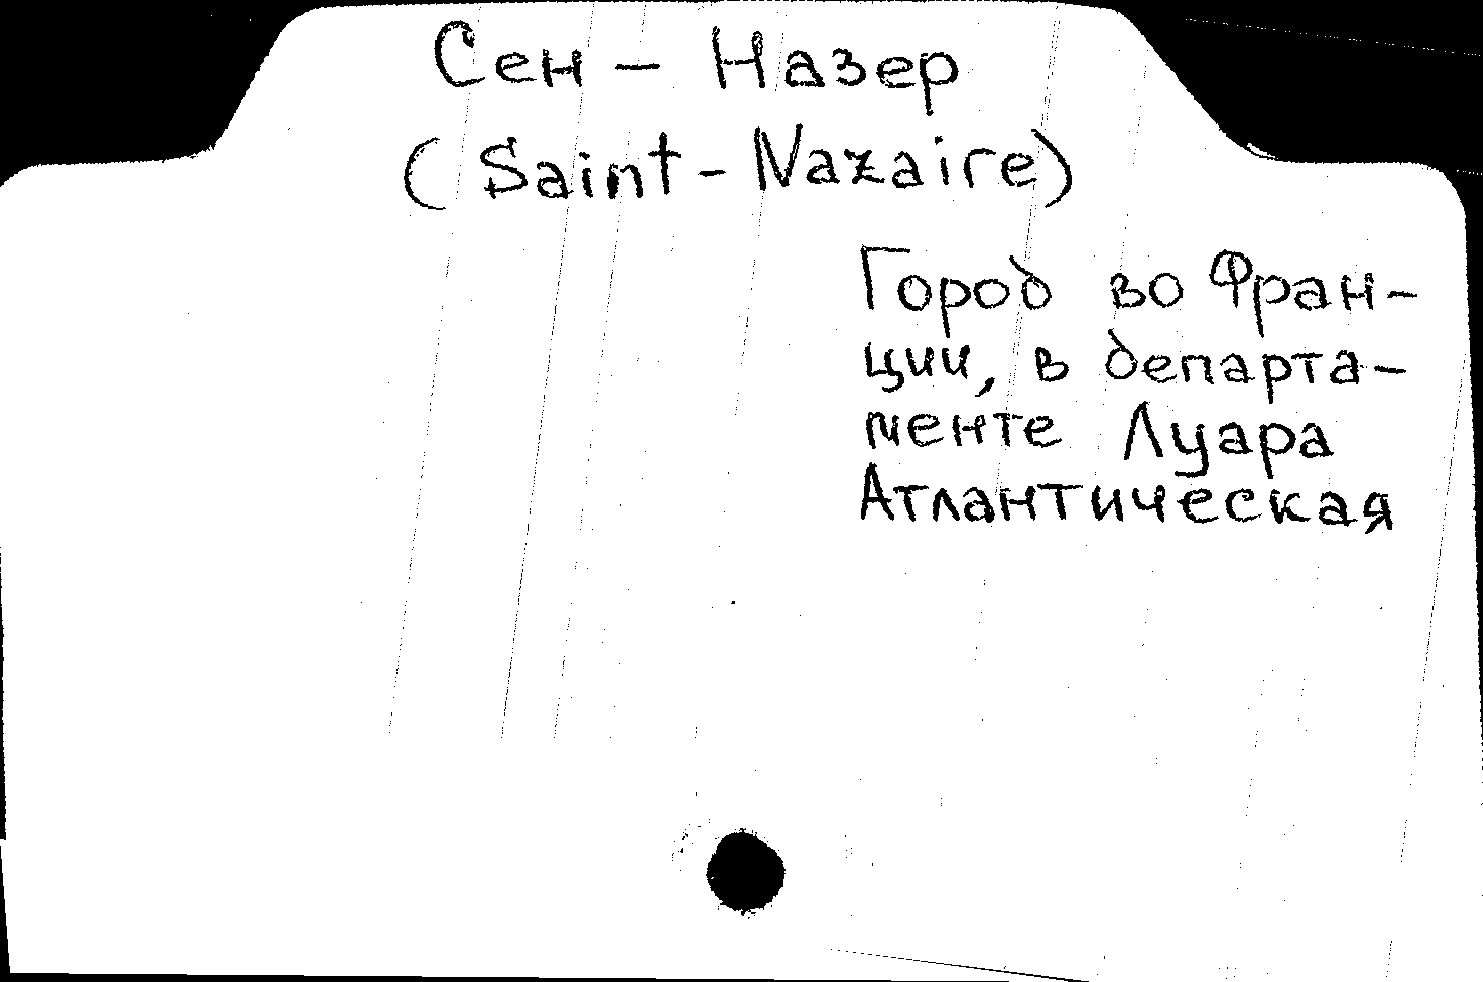 Сен - Назер
(Saint - Nazaire)
Город во Фран-
ции, в департа-
менте Луара
Атлантическая